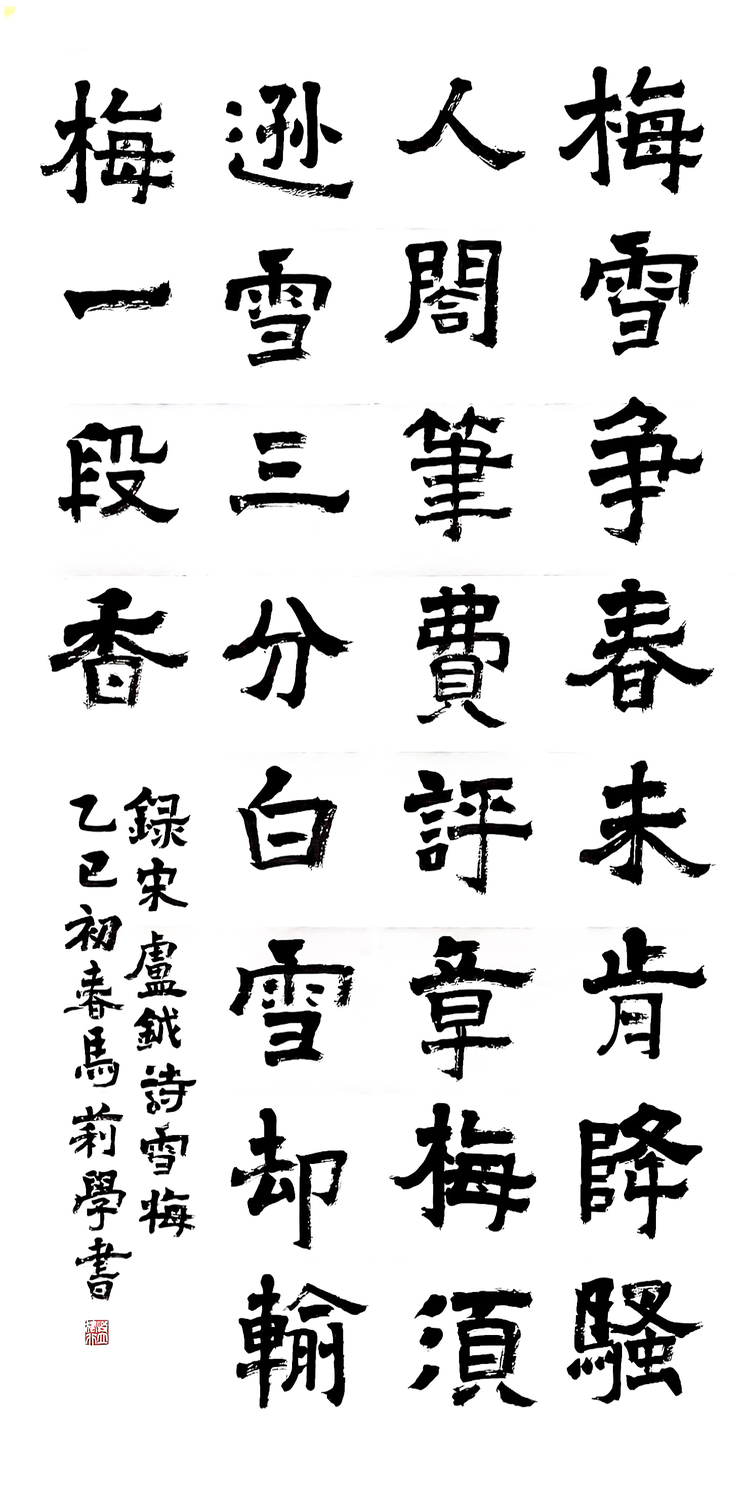 梅雪争春未肯降騷
人閣筆費評章梅須
遜雪三分白雪却輸
梅一段香
録宋盧鉞詩雪梅
乙巳初春馬莉學書